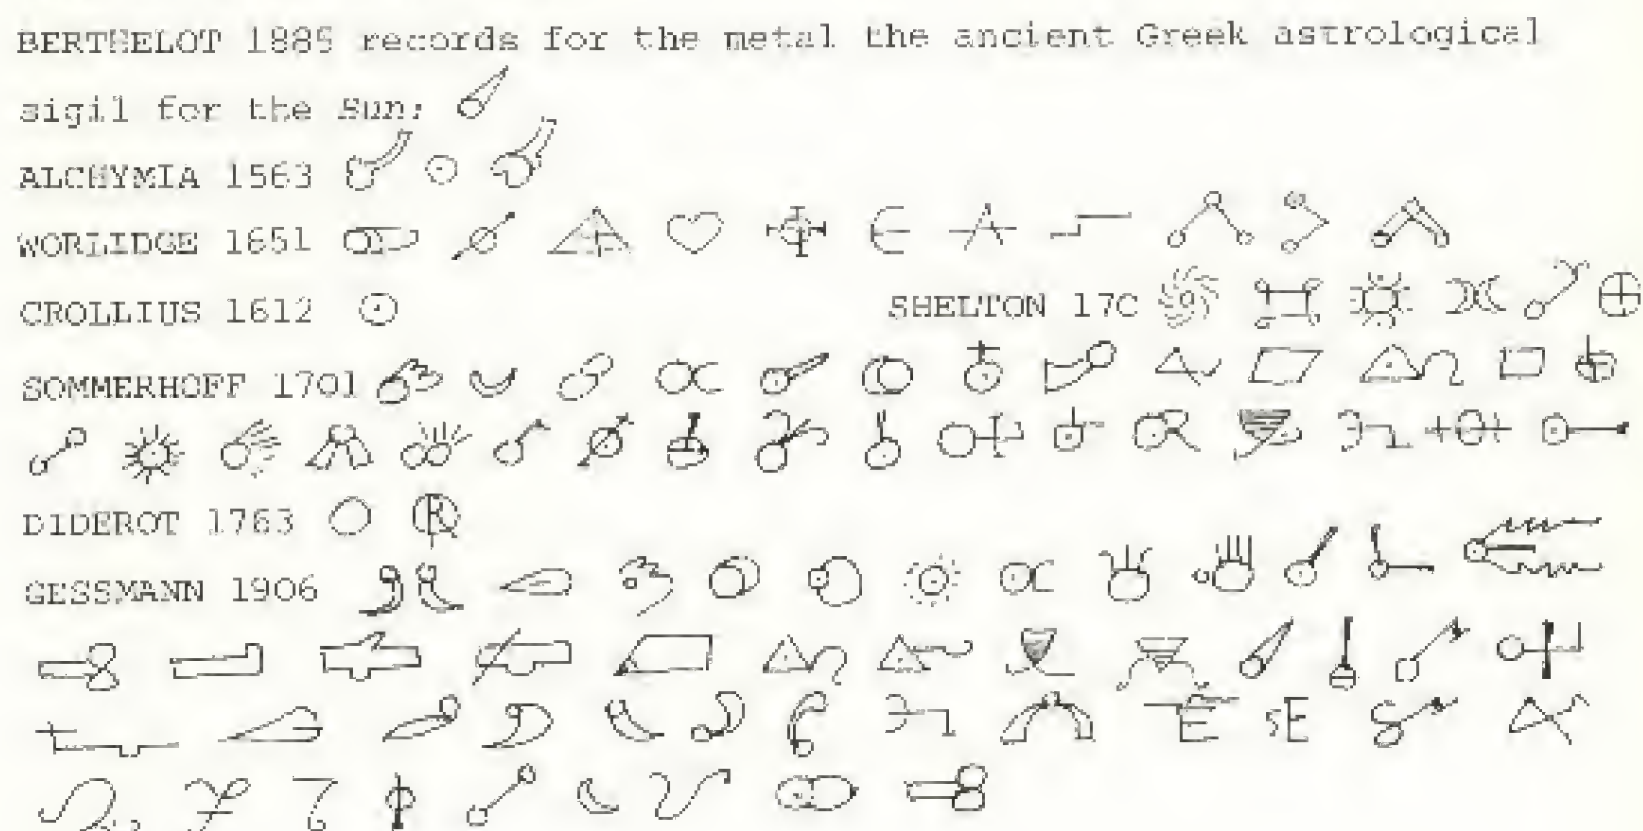 BERTHELOT 1885 records for the metal the ancient Greek astrological
sigil for the Sun:
ALCHYMIA 1563
WORLIDGE 1651
CROLLIUS 1612 SHELTON 17C
SOMMERHOFF 1701
DIDEROT 1763
GESSMANN 1906